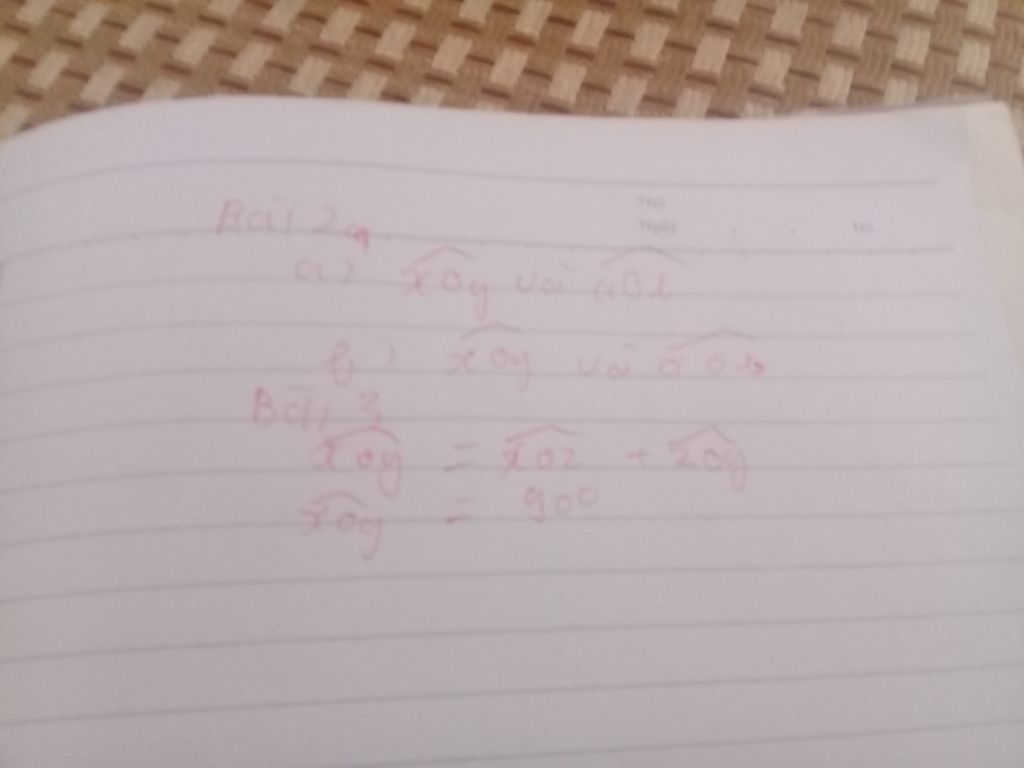 Thứ
Ngày . . No
Bài 2
a) xOy và aOb
b) xOy và aOb
Bài 3
xOy = xOz + zOy
xOy = 90°